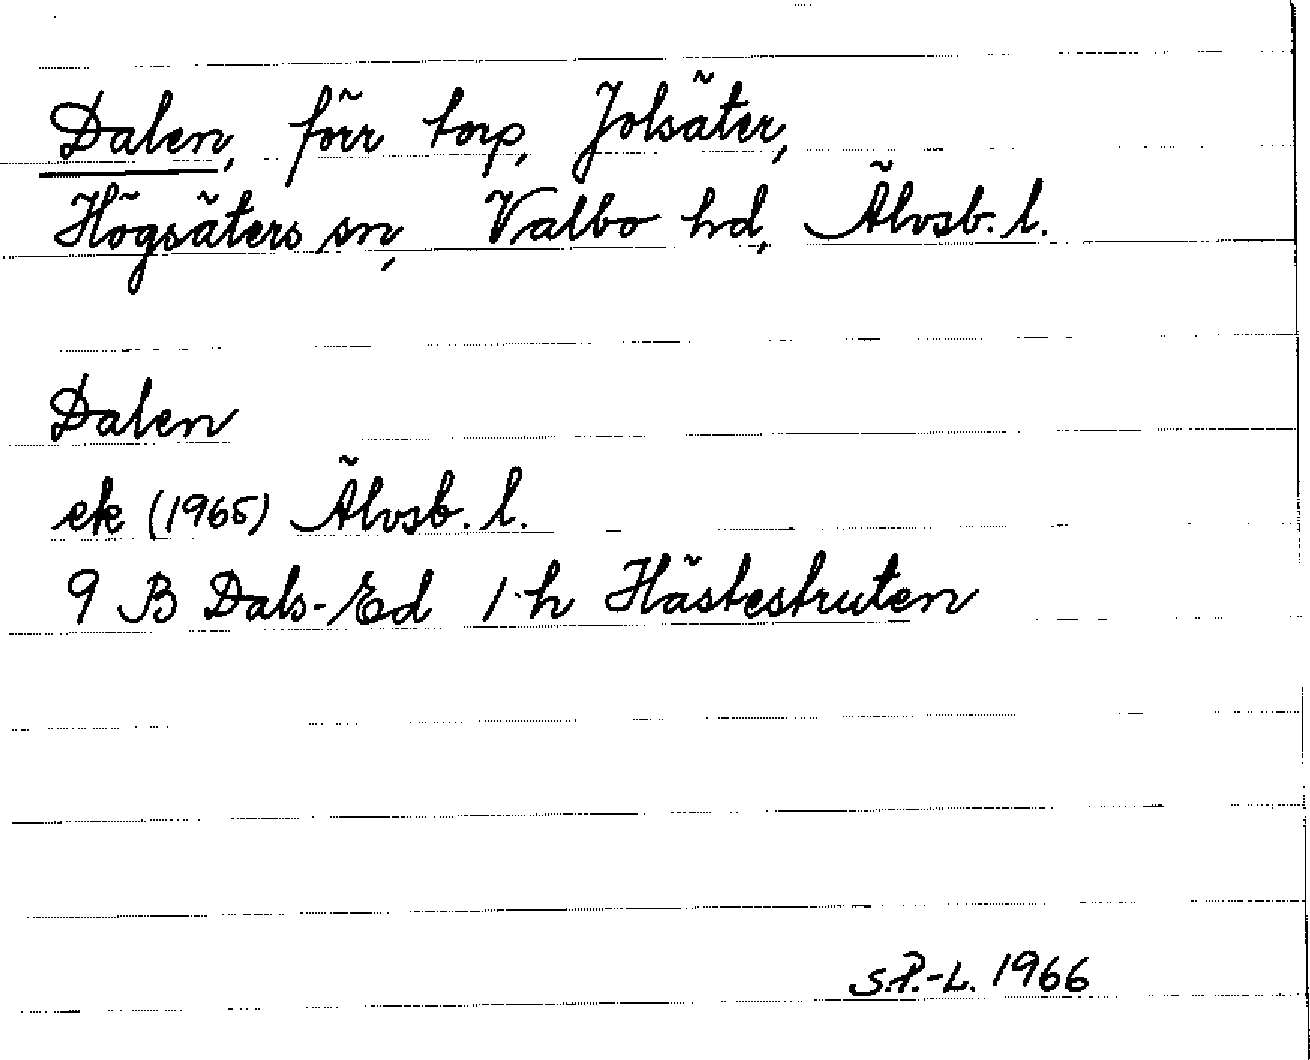 Dalen, förr torp, Jolsäter,
Högsäters sn, Valbo hd, Älvsb. l.
Dalen
ek (1965) Älvsb. l.
9 B Dals-Ed 1 h Hästestruten
S.P.-L. 1966